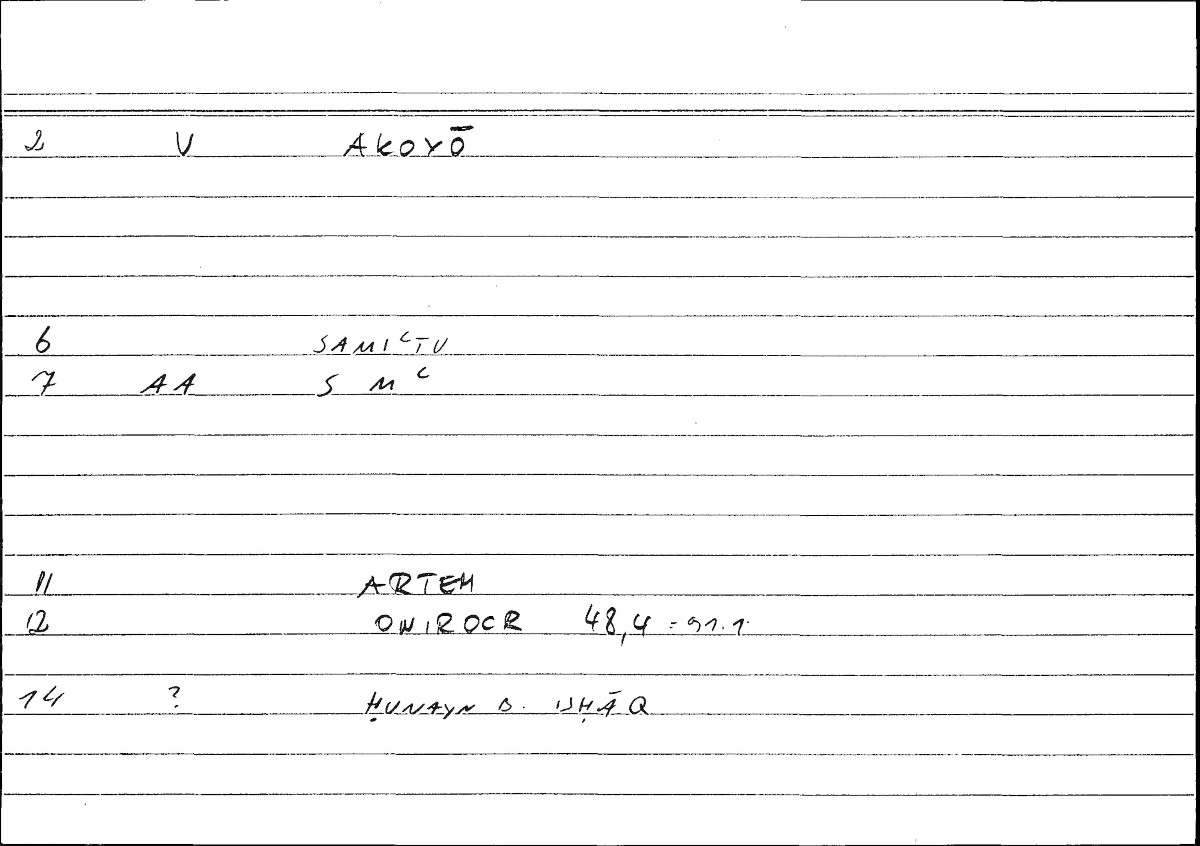 2 V AKOYŌ
6 SAMIᶜTU
7 AA S M ᶜ
11 ARTEM
12 ONIROCR 48,4 = 91.1
14 ? ḤUNAYN B. ISḤĀQ